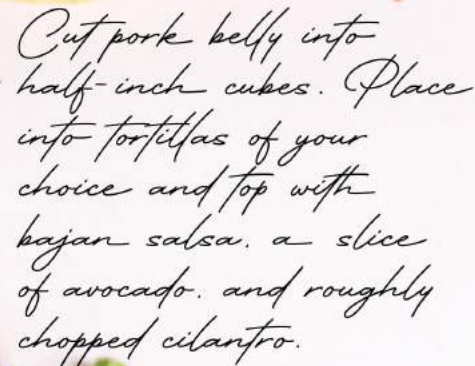 Cut pork belly into
half-inch cubes. Place
into tortillas of your
choice and top with
bajan salsa, a slice
of avocado, and roughly
chopped cilantro.